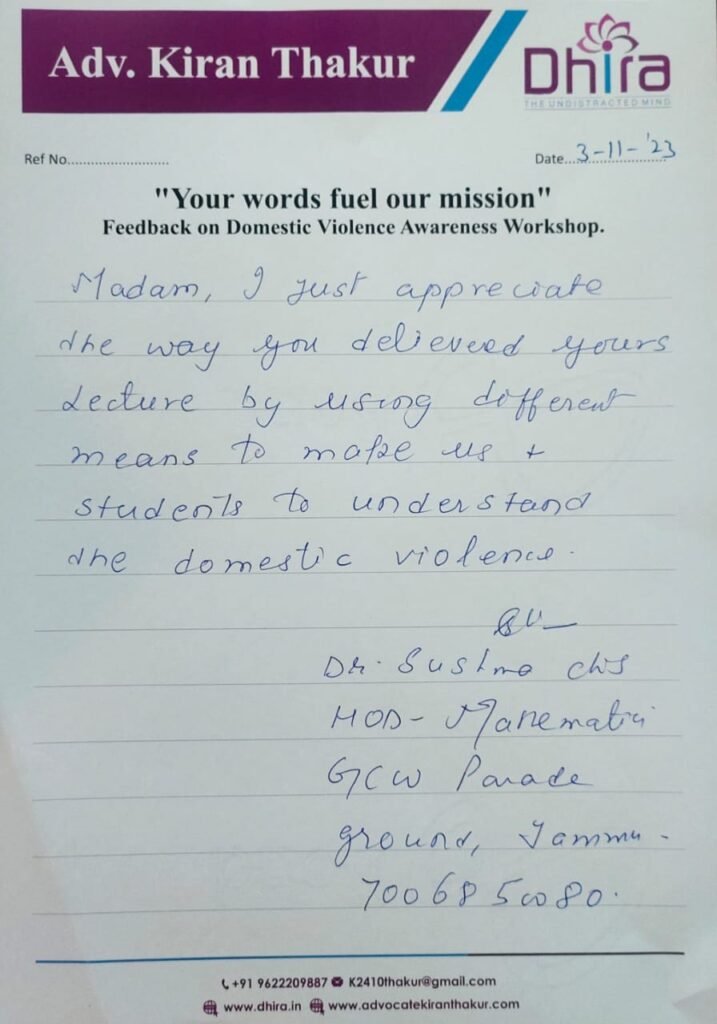 Adv. Kiran Thakur
Dhira
THE UNDISTRACTED MIND
Ref No..........................
Date...3-11-'23
"Your words fuel our mission"
Feedback on Domestic Violence Awareness Workshop.
Madam, I just appreciate
the way you delieveed yours
Lecture by using different
means to make us +
students to understand
the domestic violence.
Dr. Sushma
HOD- Mathematics
GCW Parade
ground, Jammu -
+91 9622209887 K2410thakur@gmail.com
www.dhira.in www.advocatekiranthakur.com